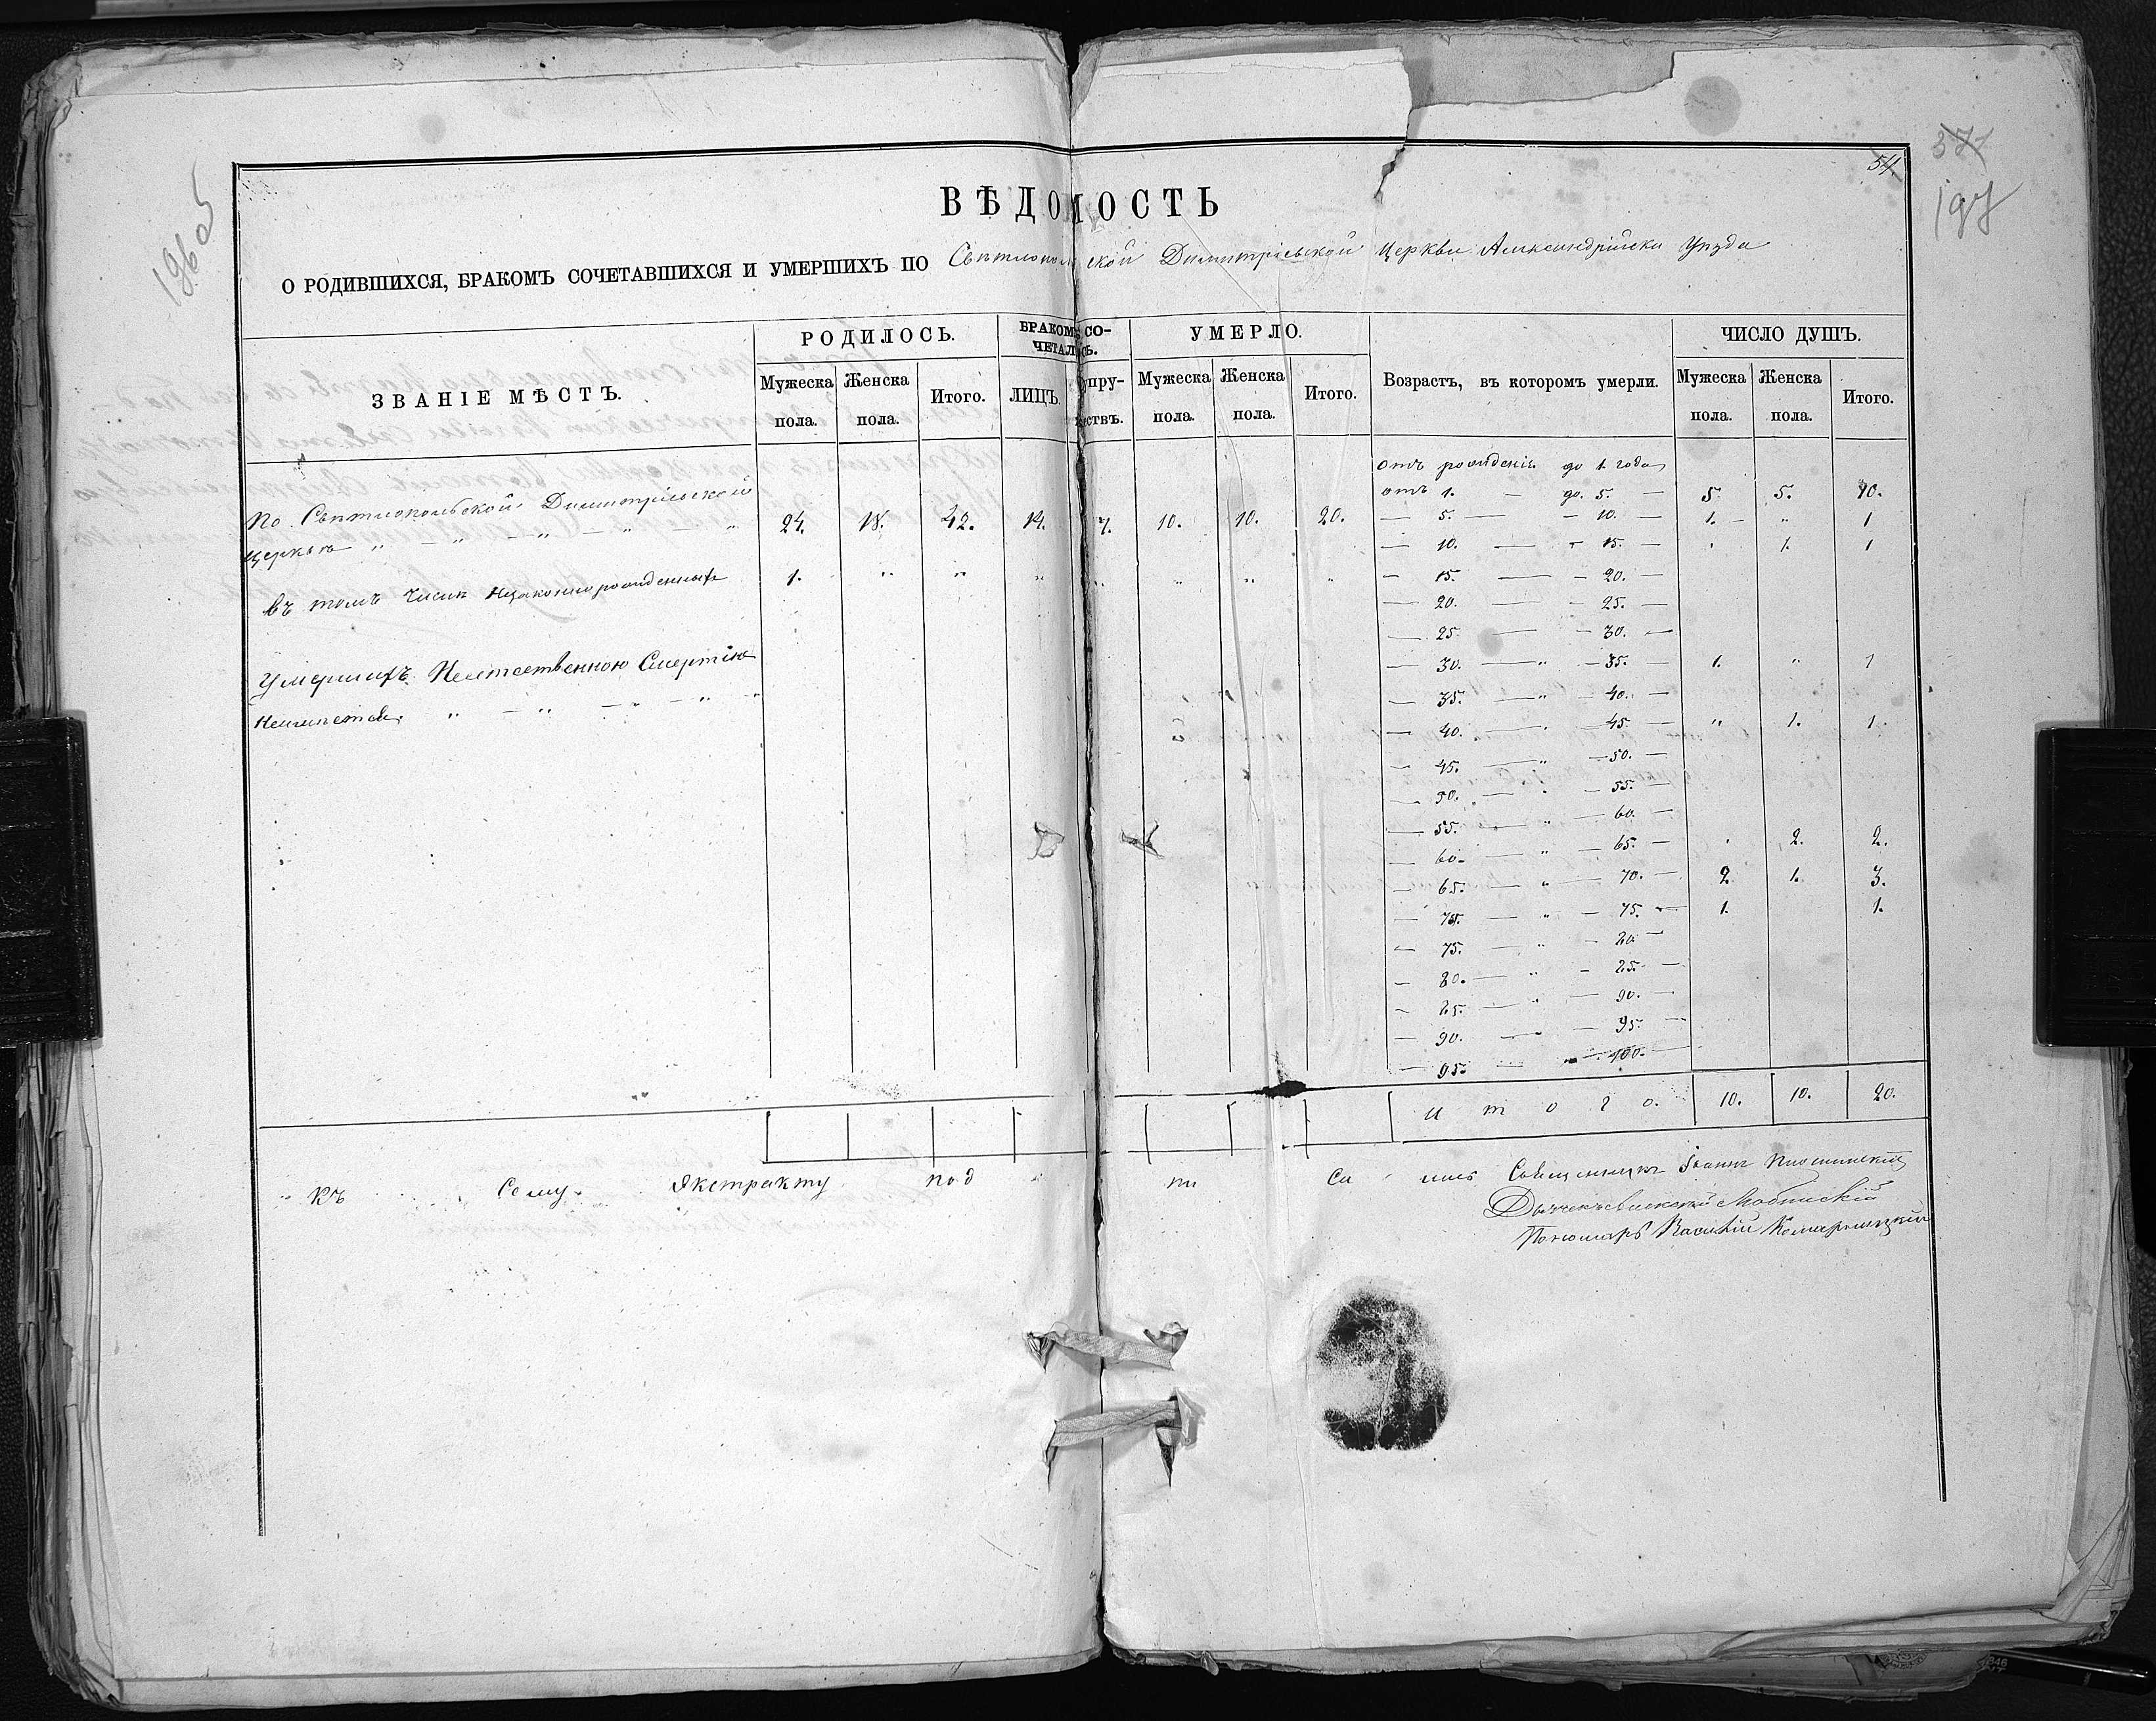 196 об
371
54.
197
ВѢДОМОСТЬ
О РОДИВШИХСЯ, БРАКОМЪ СОЧЕТАВШИХСЯ И УМЕРШИХЪ ПО Свѣтлопольской Димитріевской Церкви Александрійска Уѣзда
ЗВАНІЕ МѢСТЪ. РОДИЛОСЬ. БРАКОМЪ СО-ЧЕТАЛОСЬ. УМЕРЛО. Возрастъ, въ которомъ умерли. ЧИСЛО ДУШЪ.
Мужеска пола. Женска пола. Итого. ЛИЦЪ. Супружествъ. Мужеска пола. Женска пола. Итого. Мужеска пола. Женска пола. Итого.
По Свѣтлопольской Димитріевской
Церкви " — " — " — " — "
24. 18. 42. 14. 7. 10. 10. 20.
въ томъ числѣ незаконнорожденныхъ 1. " " " " " " "
Умершихъ Неестественною Смертію
Неимѣется. " — " — " — " — "
Отъ рожденія до 1. года
отъ 1. — до 5. — 5. 5. 10.
— 5. — — 10. — 1. — " 1
— 10. — — 15. — " 1. 1
— 15. — — 20. —
— 20. — — 25. —
— 25. — — 30. —
— 30. — " — 35. — 1. " 1
— 35. — " — 40. —
— 40. — " — 45. — " 1. 1.
— 45. — " — 50. —
— 50. — " — 55. —
— 55. — " — 60. —
— 60. — " — 65. — " 2. 2.
— 65. — " — 70. — 2. 1. 3.
— 70. — " — 75. — 1. 1.
— 75. — " — 80 —
— 80. — " — 85. —
— 85. — " — 90. —
— 90. — " — 95. —
— 95. — " — 100. —
Итого. 10. 10. 20.
Къ Сему Экстракту под пи са лись Священникъ Іоаннъ
Пономарь Василій Комарницкій